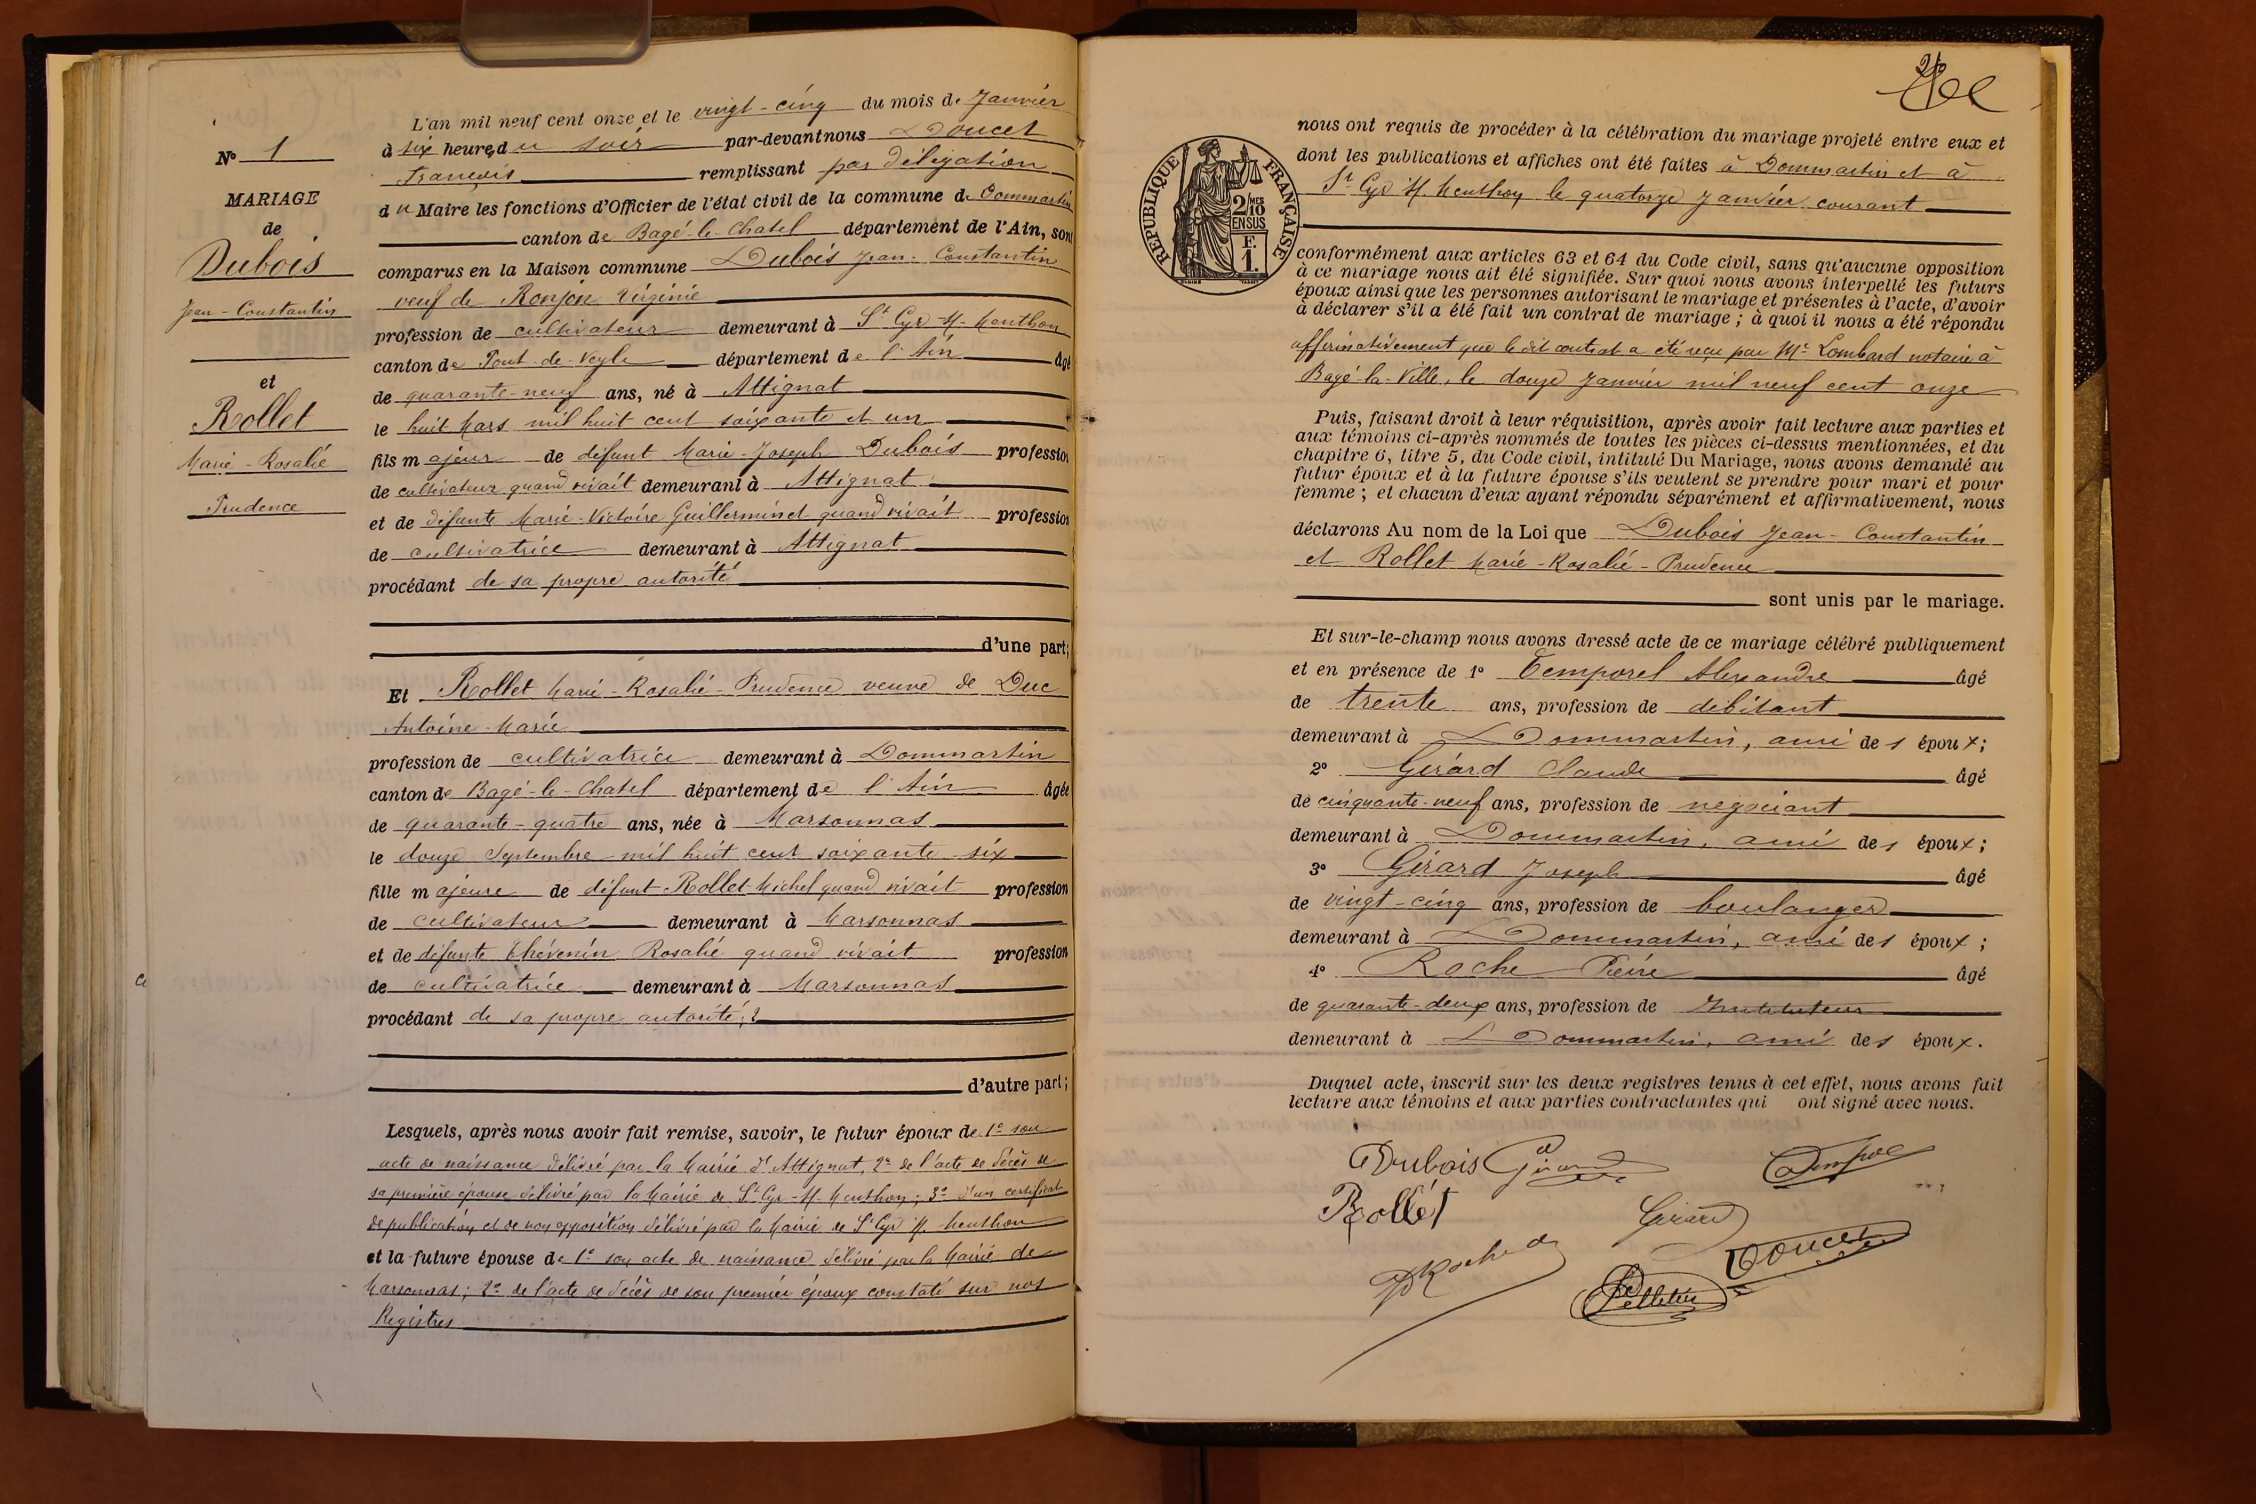 N° 1
MARIAGE
de
Dubois
Jean-Constantin
et
Rollet
Marie-Rosalie
Prudence
L'an mil neuf cent onze et le vingt-cinq du mois de Janvier
à six heures du soir par-devant nous Doucet
François remplissant par délégation
du Maire les fonctions d'Officier de l'état civil de la commune de Dommartin
canton de Bagé-le-Chatel département de l'Ain, sont
comparus en la Maison commune Dubois Jean-Constantin
veuf de Ronjon Virginie
profession de cultivateur demeurant à St Cyr-s/-Menthon
canton de Pont-de-Veyle département de l'Ain âgé
de quarante-neuf ans, né à Attignat
le huit Mars mil huit cent soixante et un
fils majeur de défunt Marie-Joseph Dubois profession
de cultivateur quand vivait demeurant à Attignat
et de défunte Marie-Victoire Guillerminet quand vivait profession
de cultivatrice demeurant à Attignat
procédant de sa propre autorité
d'une part;
Et Rollet Marie-Rosalie-Prudence veuve de Duc
Antoine-Marie
profession de cultivatrice demeurant à Dommartin
canton de Bagé-le-Chatel département de l'Ain âgée
de quarante-quatre ans, née à Marsonnas
le douze Septembre mil huit cent soixante six
fille majeure de défunt Rollet Michel quand vivait profession
de cultivateur demeurant à Marsonnas
et de défunte Thévenin Rosalie quand vivait profession
de cultivatrice demeurant à Marsonnas
procédant de sa propre autorité;
d'autre part;
Lesquels, après nous avoir fait remise, savoir, le futur époux de 1° son
acte de naissance délivré par la Mairie d'Attignat, 2° de l'acte de décès de
sa première épouse délivré par la Mairie de St Cyr-s/-Menthon; 3° d'un certificat
de publication et de non opposition délivré par la Mairie de St Cyr s/ Menthon
et la future épouse de 1° son acte de naissance délivré par la Mairie de
Marsonnas; 2° de l'acte de décès de son premier époux constaté sur nos
Registres
RÉPUBLIQUE FRANÇAISE
2/10 MES
EN SUS
F.
1.
nous ont requis de procéder à la célébration du mariage projeté entre eux et
dont les publications et affiches ont été faites à Dommartin et à
St Cyr s/ Menthon le quatorze Janvier courant
conformément aux articles 63 et 64 du Code civil, sans qu'aucune opposition
à ce mariage nous ait été signifiée. Sur quoi nous avons interpellé les futurs
époux ainsi que les personnes autorisant le mariage et présentes à l'acte, d'avoir
à déclarer s'il a été fait un contrat de mariage; à quoi il nous a été répondu
affirmativement que le dit contrat a été reçu par Me Lombard notaire à
Bagé-la-Ville, le douze Janvier mil neuf cent onze
Puis, faisant droit à leur réquisition, après avoir fait lecture aux parties et
aux témoins ci-après nommés de toutes les pièces ci-dessus mentionnées, et du
chapitre 6, titre 5, du Code civil, intitulé Du Mariage, nous avons demandé au
futur époux et à la future épouse s'ils veulent se prendre pour mari et pour
femme; et chacun d'eux ayant répondu séparément et affirmativement, nous
déclarons Au nom de la Loi que Dubois Jean-Constantin
et Rollet Marie-Rosalie-Prudence
sont unis par le mariage.
Et sur-le-champ nous avons dressé acte de ce mariage célébré publiquement
et en présence de 1° Temporel Alexandre âgé
de trente ans, profession de débitant
demeurant à Dommartin, ami des époux;
2° Gérard Claude âgé
de cinquante-neuf ans, profession de négociant
demeurant à Dommartin, ami des époux;
3° Gérard Joseph âgé
de vingt-cinq ans, profession de boulanger
demeurant à Dommartin, ami des époux;
4° Roche Pierre âgé
de quarante-deux ans, profession de Instituteur
demeurant à Dommartin, ami des époux.
Duquel acte, inscrit sur les deux registres tenus à cet effet, nous avons fait
lecture aux témoins et aux parties contractantes qui ont signé avec nous.
Dubois Girard
Rollet Girard
Roche Doucet
Pelletier